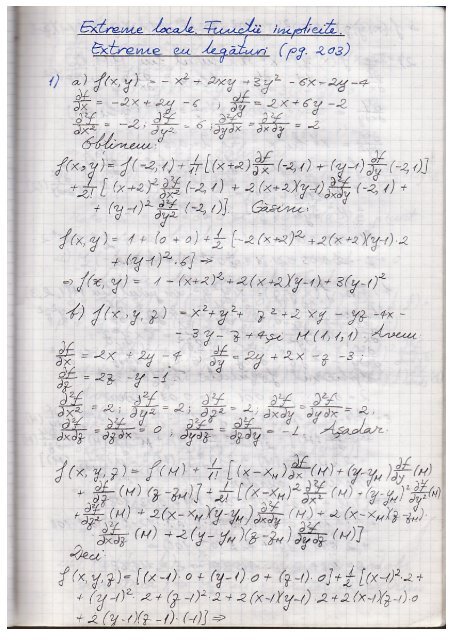 Extreme locale. Funcții implicite.
Extreme cu legături (pg. 203)
1) a) f(x,y) = -x² + 2xy + 3y² - 6x - 2y - 4
∂f/∂x = -2x + 2y - 6 ; ∂f/∂y = 2x + 6y - 2
∂²f/∂x² = -2; ∂²f/∂y² = 6; ∂²f/∂y∂x = ∂²f/∂x∂y = 2
Obținem:
f(x,y) = f(-2,1) + 1/1! [(x+2) ∂f/∂x (-2,1) + (y-1) ∂f/∂y (-2,1)]
+ 1/2! [(x+2)² ∂²f/∂x² (-2,1) + 2(x+2)(y-1) ∂²f/∂x∂y (-2,1) +
+ (y-1)² ∂²f/∂y² (-2,1)]. Găsim:
f(x,y) = 1 + (0+0) + 1/2 [-2(x+2)² + 2(x+2)(y-1)·2
+ (y-1)²·6] ⇒
⇒ f(x,y) = 1 - (x+2)² + 2(x+2)(y-1) + 3(y-1)²
b) f(x,y,z) = x² + y² + z² + 2xy - yz - 4x -
- 3y - z + 4 și M(1,1,1). Avem
∂f/∂x = 2x + 2y - 4 ; ∂f/∂y = 2y + 2x - z - 3;
∂f/∂z = 2z - y - 1
∂²f/∂x² = 2; ∂²f/∂y² = 2; ∂²f/∂z² = 2; ∂²f/∂x∂y = ∂²f/∂y∂x = 2;
∂²f/∂x∂z = ∂²f/∂z∂x = 0; ∂²f/∂y∂z = ∂²f/∂z∂y = -1. Așadar:
f(x,y,z) = f(M) + 1/1! [(x-x_M) ∂f/∂x (M) + (y-y_M) ∂f/∂y (M)
+ ∂f/∂z (M) (z-z_M)] + 1/2! [(x-x_M)² ∂²f/∂x² (M) + (y-y_M)² ∂²f/∂y² (M)
+ ∂²f/∂z² (M) + 2(x-x_M)(y-y_M) ∂²f/∂x∂y (M) + 2(x-x_M)(z-z_M)·
∂²f/∂x∂z (M) + 2(y-y_M)(z-z_M) ∂²f/∂y∂z (M)]
Deci:
f(x,y,z) = [(x-1)·0 + (y-1)·0 + (z-1)·0] + 1/2 [(x-1)²·2 +
+ (y-1)²·2 + (z-1)²·2 + 2(x-1)(y-1)·2 + 2(x-1)(z-1)·0
+ 2(y-1)(z-1)·(-1)] ⇒